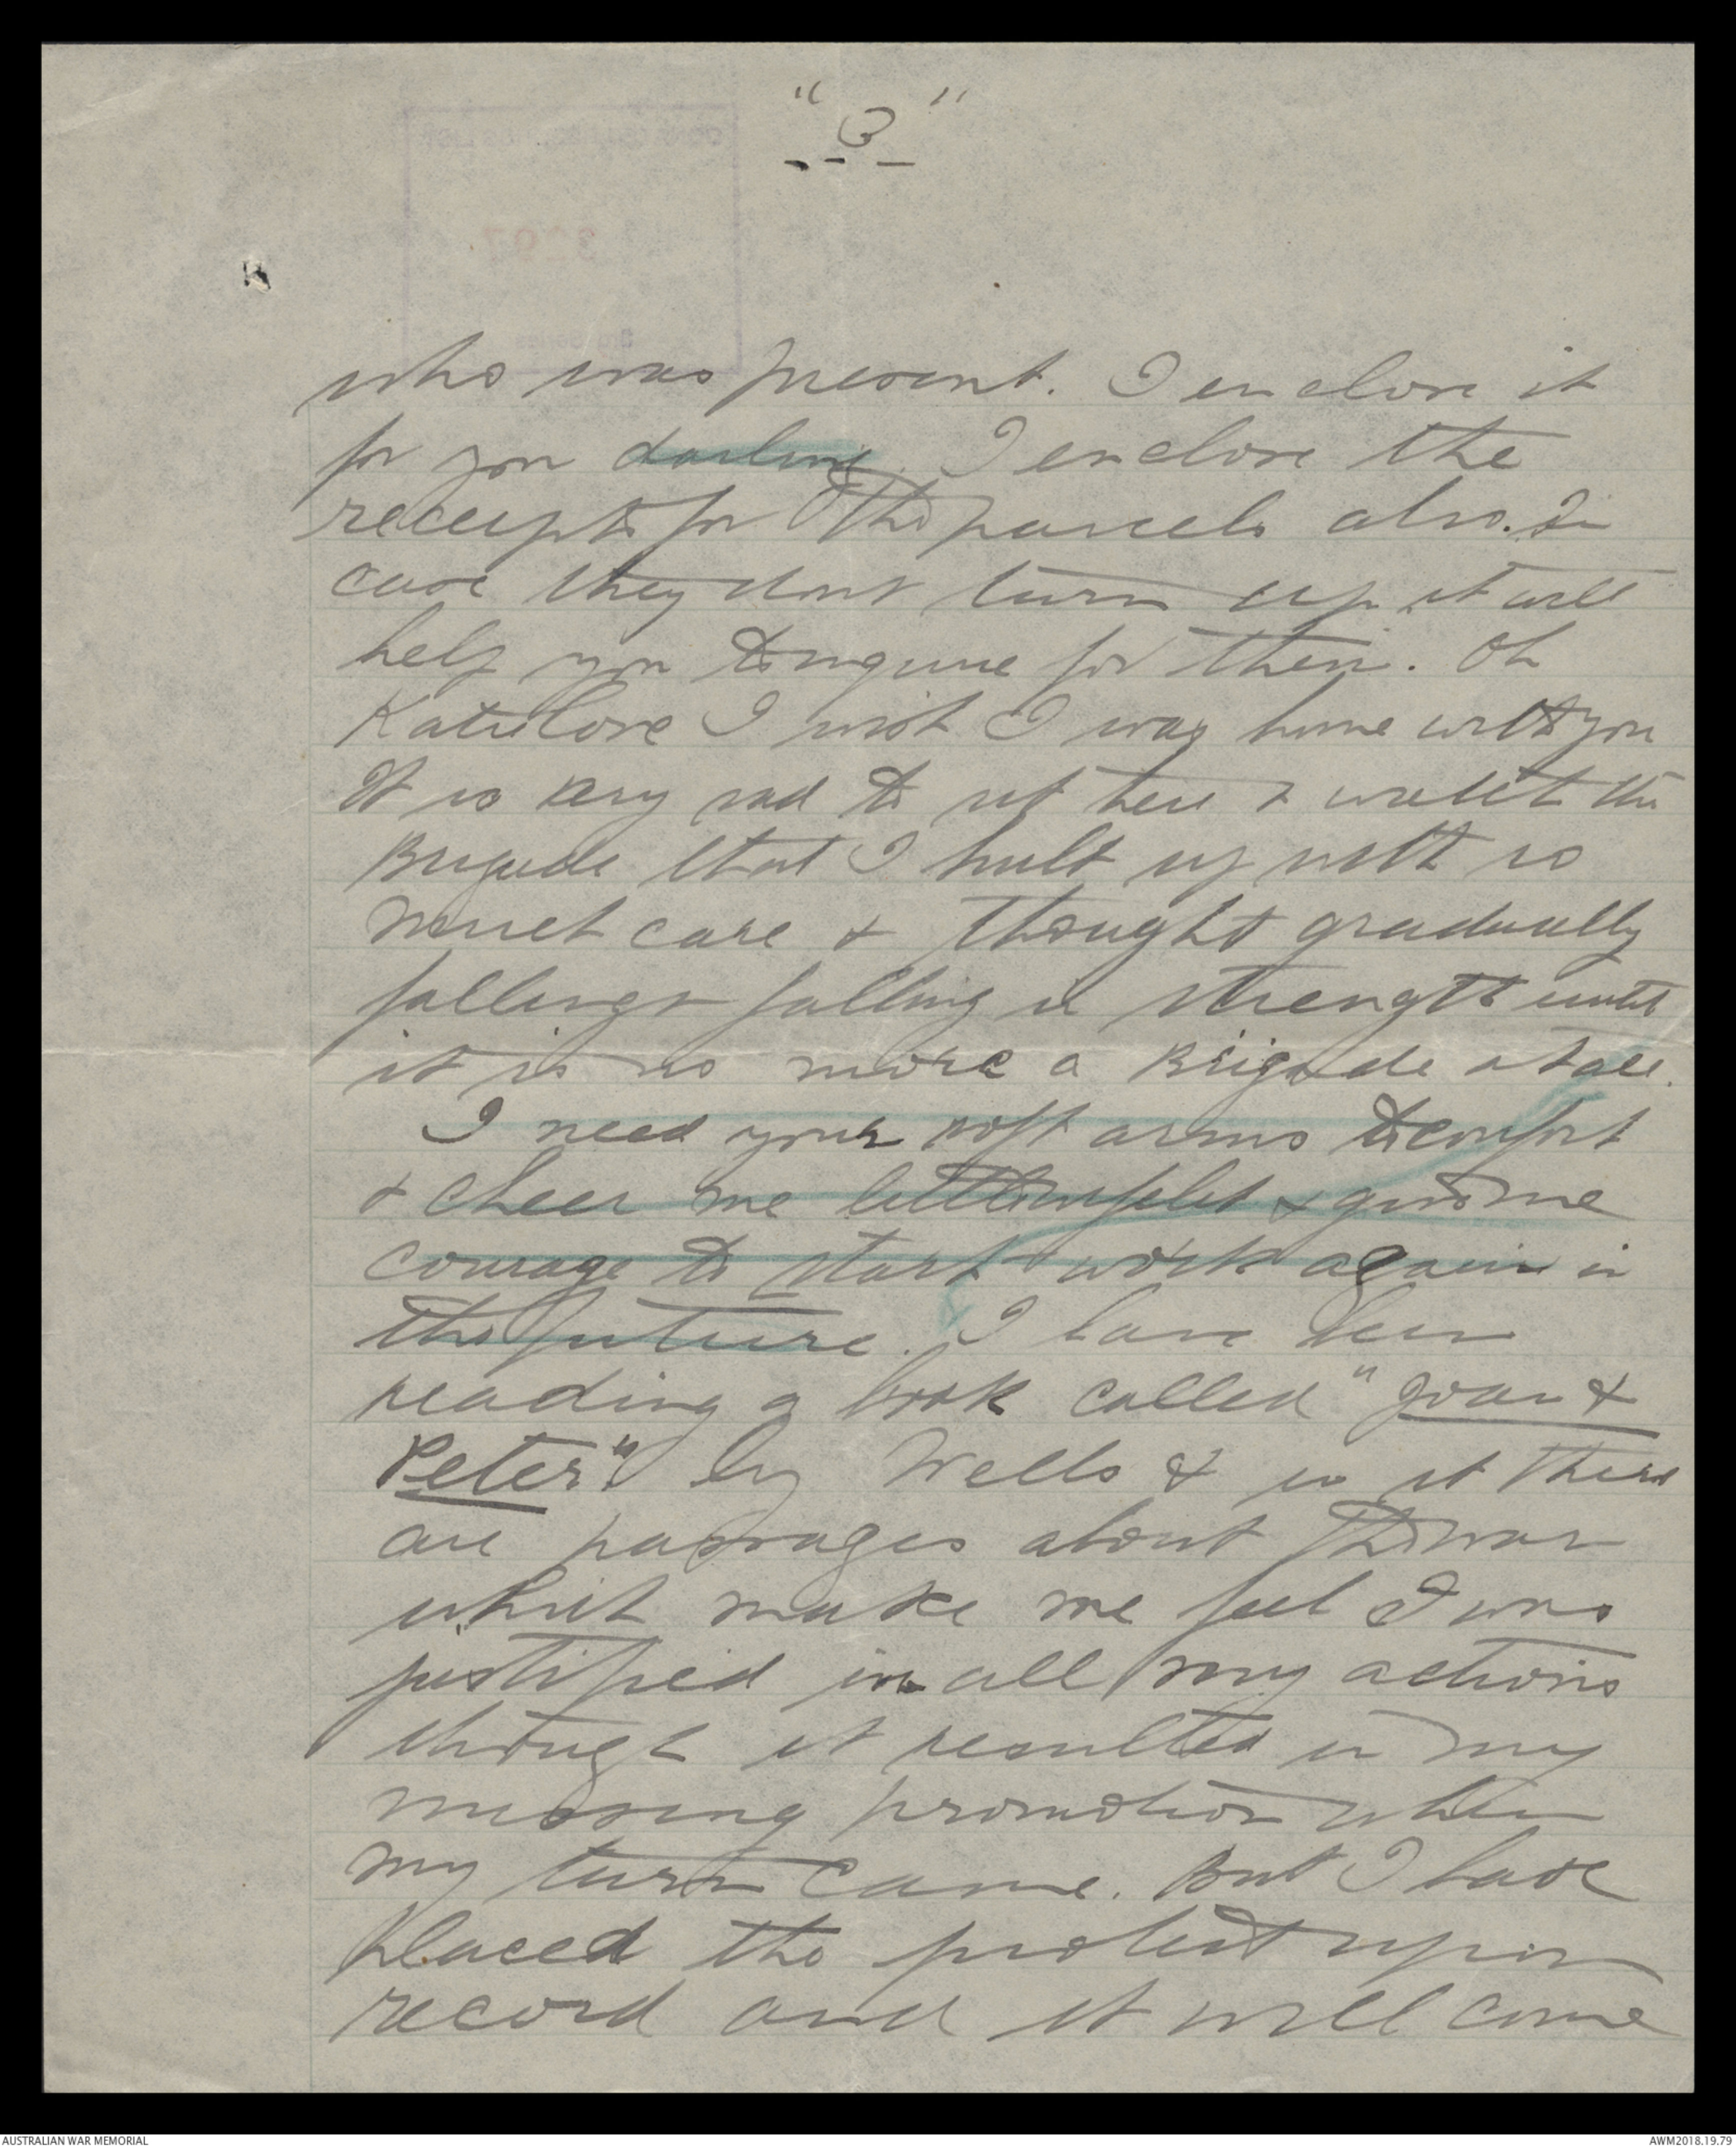 "3"
who was present. I enclose it
for you darling. I enclose the
receipts for the parcels also. In
case they dont turn up it will
help you to inquire for them. Oh
Katie love I wish I was home with you
It is very sad to sit here & watch the
Brigade that I built up with so
much care & thought gradually
falling & falling in strength until
it is no more a Brigade at all.
I need your soft arms to comfort
& cheer me & give me
courage to start work again in
the future. I have been
reading a book called "Joan &
Peter" by Wells & in it there
are passages about the war
which make me feel I was
justified in all my actions
though it resulted in my
missing promotion when
my turn came. But I have
placed the protest upon
record and it will come
AUSTRALIAN WAR MEMORIAL
AWM2018.19.79